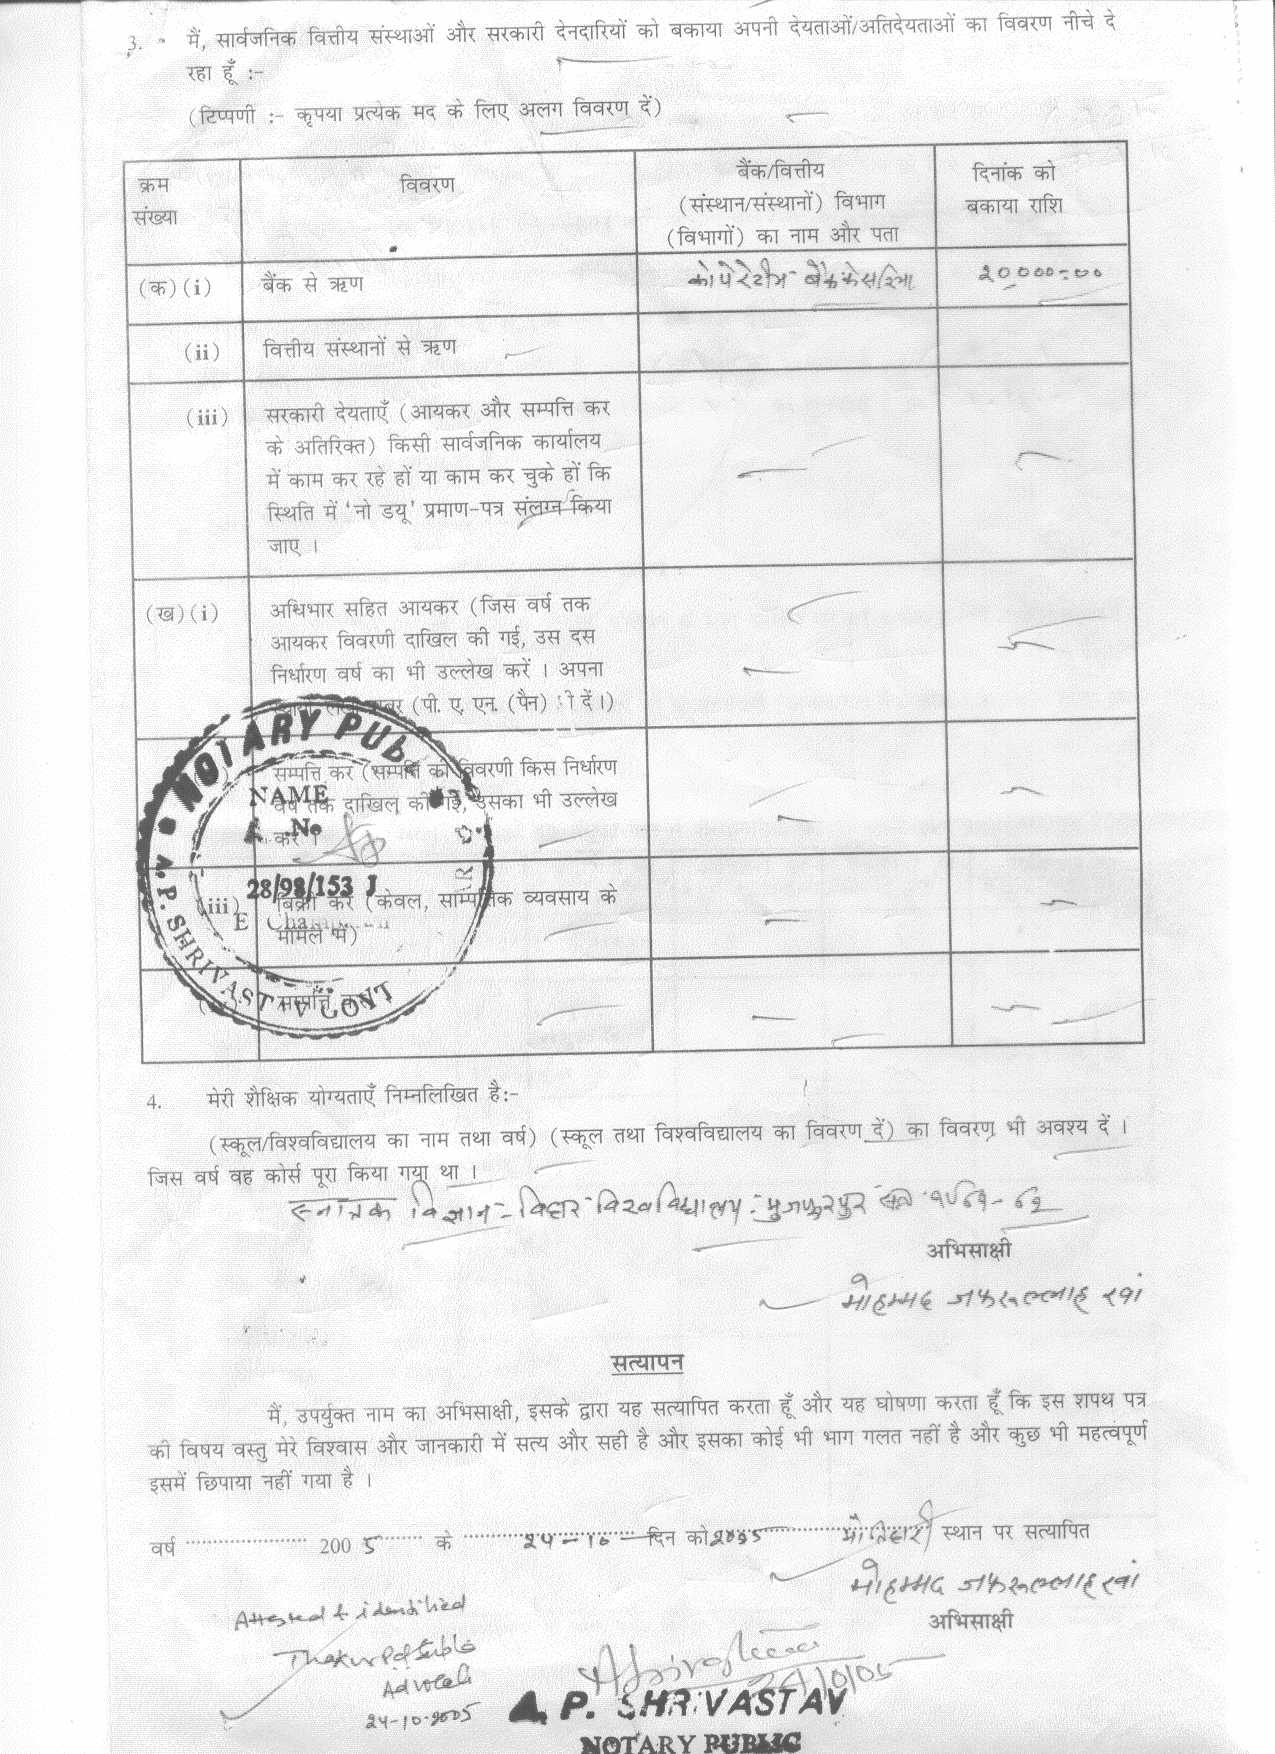 3. मैं, सार्वजनिक वित्तीय संस्थाओं और सरकारी देनदारियों को बकाया अपनी देयताओं/अतिदेयताओं का विवरण नीचे दे
रहा हूँ :-
(टिप्पणी :- कृपया प्रत्येक मद के लिए अलग विवरण दें)
क्रम
संख्या
विवरण
बैंक/वित्तीय
(संस्थान/संस्थानों) विभाग
(विभागों) का नाम और पता
दिनांक को
बकाया राशि
(क) (i) बैंक से ऋण कोपेरेटीभ बैंक केसरिआ २०,०००=००
(ii) वित्तीय संस्थानों से ऋण
(iii) सरकारी देयताएँ (आयकर और सम्पत्ति कर
के अतिरिक्त) किसी सार्वजनिक कार्यालय
में काम कर रहे हों या काम कर चुके हों कि
स्थिति में 'नो डयू' प्रमाण-पत्र संलग्न किया
जाए ।
(ख) (i) अधिभार सहित आयकर (जिस वर्ष तक
आयकर विवरणी दाखिल की गई, उस दस
निर्धारण वर्ष का भी उल्लेख करें । अपना
(पी. ए. एन. (पैन) दें।)
सम्पत्ति कर (सम्पत्ति की विवरणी किस निर्धारण
वर्ष तक दाखिल की गई, उसका भी उल्लेख
करें ।
(iii) बिक्री कर (केवल, साम्पत्तिक व्यवसाय के
मामले में)
सम्पत्ति कर
NOTARY PUB
NAME
No
28/98/153 J
E Cham
A. P. SHRIVASTAV GOVT
4. मेरी शैक्षिक योग्यताएँ निम्नलिखित है:-
(स्कूल/विश्वविद्यालय का नाम तथा वर्ष) (स्कूल तथा विश्वविद्यालय का विवरण दें) का विवरण भी अवश्य दें ।
जिस वर्ष वह कोर्स पूरा किया गया था ।
स्नात्रक विज्ञान - विहार विश्वविद्यालय मुजफ्फरपुर
अभिसाक्षी
मोहम्मद जफरूल्लाह खां
सत्यापन
मैं, उपर्युक्त नाम का अभिसाक्षी, इसके द्वारा यह सत्यापित करता हूँ और यह घोषणा करता हूँ कि इस शपथ पत्र
की विषय वस्तु मेरे विश्वास और जानकारी में सत्य और सही है और इसका कोई भी भाग गलत नहीं है और कुछ भी महत्वपूर्ण
इसमें छिपाया नहीं गया है ।
वर्ष 200 5 के २४-१० दिन को २००५ मोतिहारी स्थान पर सत्यापित
मोहम्मद जफरूल्लाह खां
अभिसाक्षी
Attested & identified
Advocate
24-10-2005
24/10/05
A. P. SHRIVASTAV
NOTARY PUBLIC